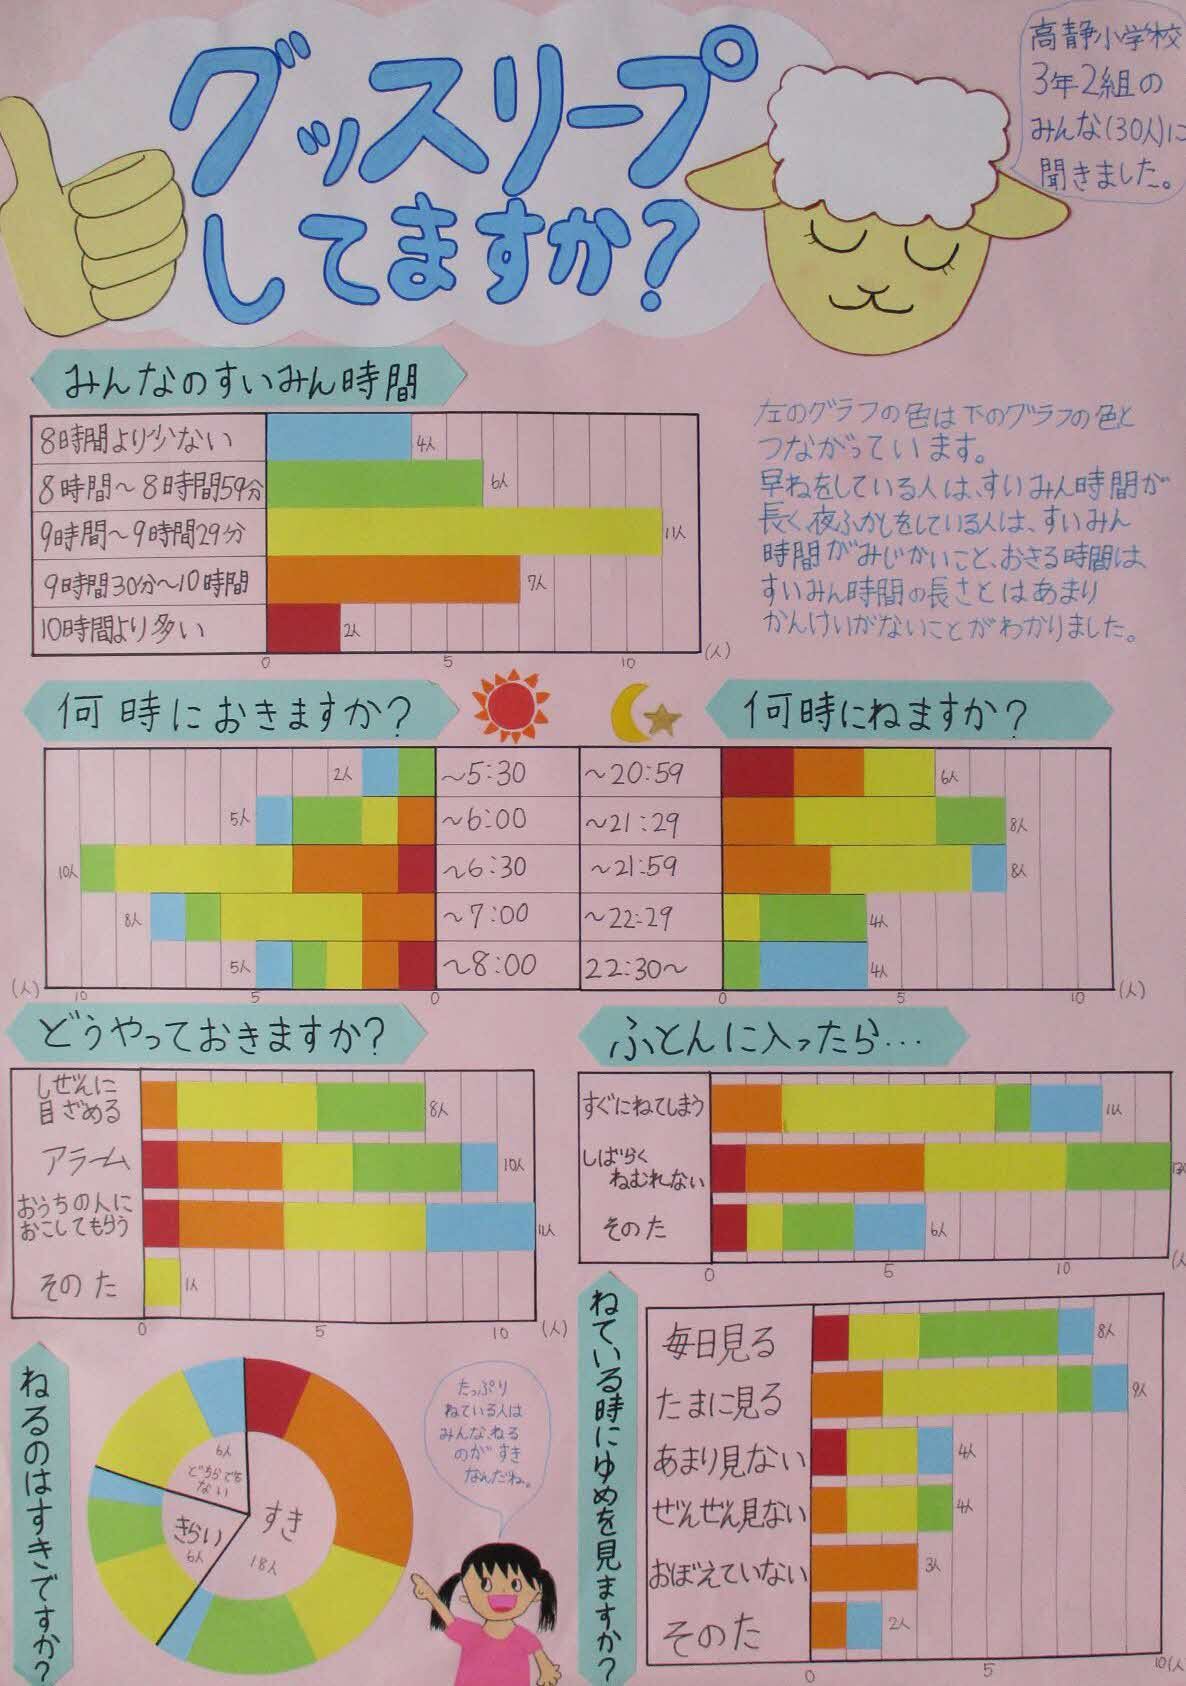 グッスリープ
してますか?
高静小学校
3年2組の
みんな(30人)に
聞きました。
みんなのすいみん時間
8時間より少ない
4人
8時間～8時間59分
6人
9時間～9時間29分
11人
9時間30分～10時間
7人
10時間より多い
2人
0 5 10 (人)
左のグラフの色は下のグラフの色と
つながっています。
早ねをしている人は、すいみん時間が
長く、夜ふかしをしている人は、すいみん
時間がみじかいこと、おきる時間は、
すいみん時間の長さとはあまり
かんけいがないことがわかりました。
何時におきますか?
2人 ～5:30
5人 ～6:00
10人 ～6:30
8人 ～7:00
5人 ～8:00
(人) 10 5 0
何時にねますか?
～20:59 6人
～21:29 8人
～21:59 8人
～22:29 4人
22:30～ 4人
0 5 10 (人)
どうやっておきますか?
しぜんに
目ざめる
8人
アラーム
10人
おうちの人に
おこしてもらう
11人
そのた
1人
0 5 10 (人)
ふとんに入ったら…
すぐにねてしまう
11人
しばらく
ねむれない
13人
そのた
6人
0 5 10 (人
ねるのはすきですか?
すき
18人
きらい
6人
6人
どちらでも
ない
たっぷり
ねている人は
みんな、ねる
のがすき
なんだね。
ねている時にゆめを見ますか?
毎日見る
8人
たまに見る
9人
あまり見ない
4人
ぜんぜん見ない
4人
おぼえていない
3人
そのた
2人
0 5 10(人)